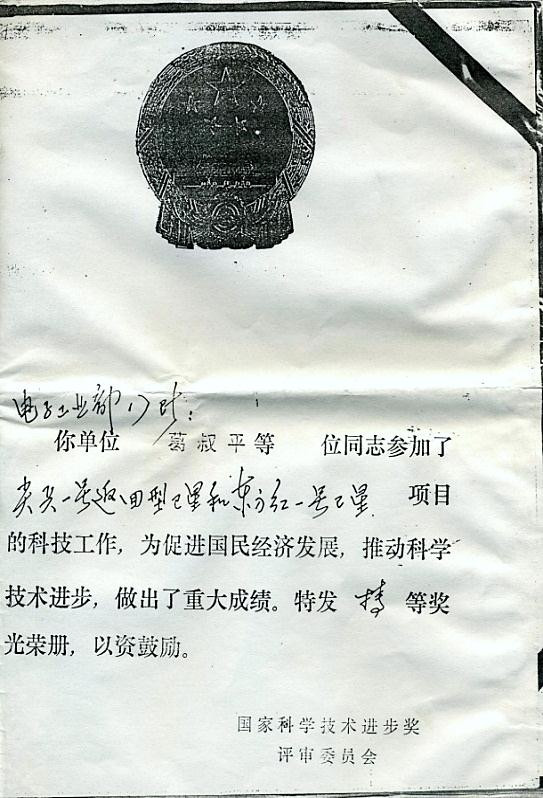 电子工业部
你单位 葛叔平等 位同志参加了
尖兵一号返回型卫星和东方红一号卫星 项目
的科技工作，为促进国民经济发展，推动科学
技术进步，做出了重大成绩。特发 特 等奖
光荣册，以资鼓励。
国家科学技术进步奖
评审委员会